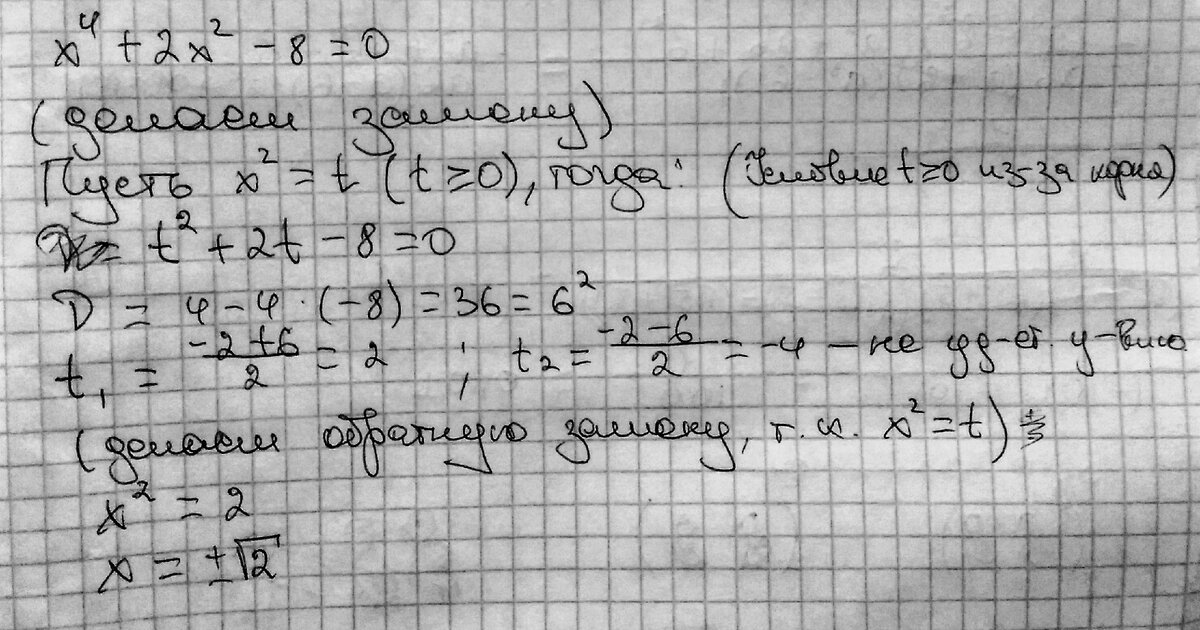 x⁴ + 2x² - 8 = 0
(делаем замену)
Пусть x² = t (t ≥ 0), тогда: (Условие t ≥ 0 из-за корня)
t² + 2t - 8 = 0
D = 4 - 4 · (-8) = 36 = 6²
t₁ = (-2+6)/2 = 2 ; t₂ = (-2-6)/2 = -4 — не уд-ет. у-вию
(делаем обратную замену, т.к. x² = t)
x² = 2
x = ±√2